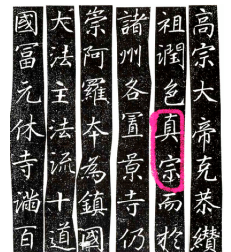 高宗大帝克恭纘
祖潤色真宗而於
諸州各置景寺仍
崇阿羅本為鎮國
大法主法流十道
國冨元休寺滿百